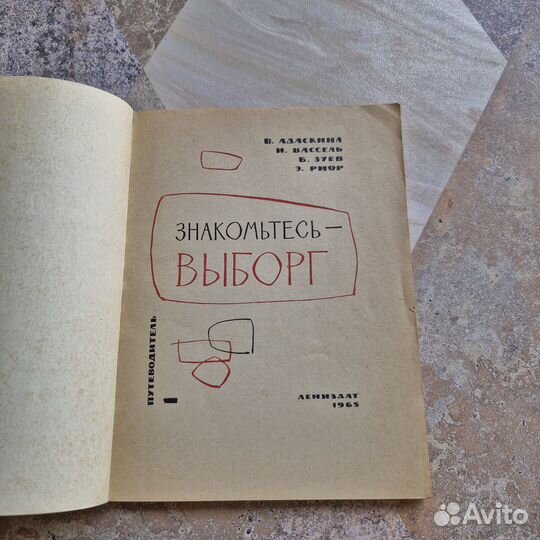 В. АДАСКИНА
И. ВАССЕЛЬ
Б. ЗУЕВ
Э. РИОР
ЗНАКОМЬТЕСЬ —
ВЫБОРГ
ПУТЕВОДИТЕЛЬ
ЛЕНИЗДАТ
1965
Avito